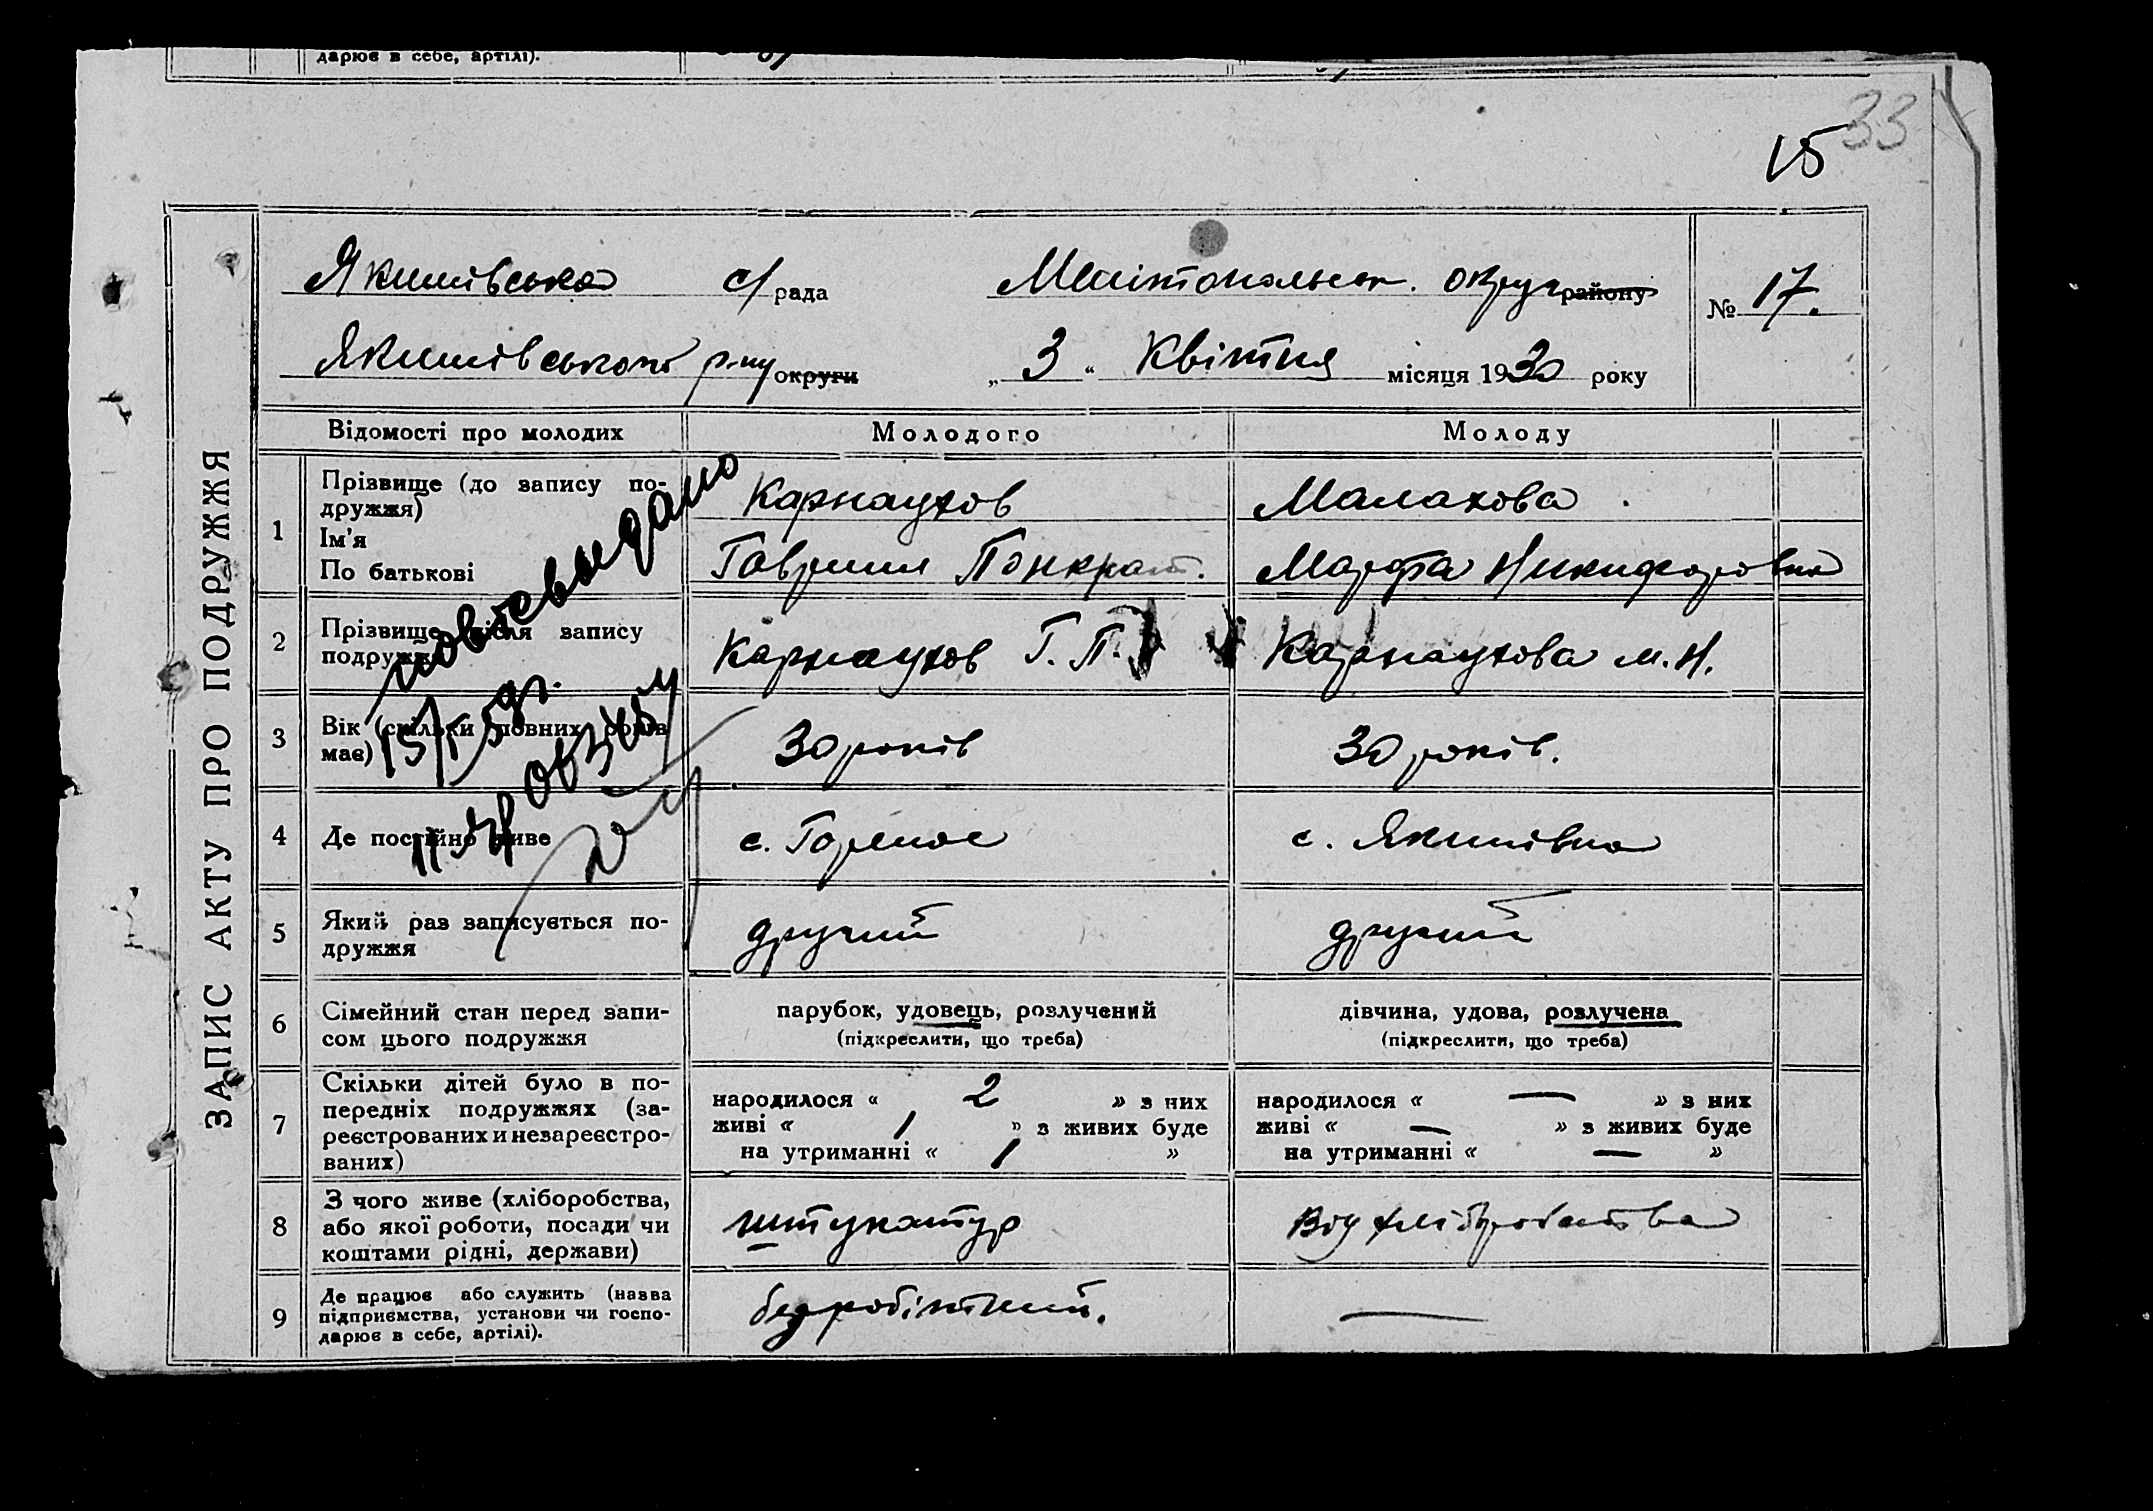 дарює в себе, артілі).
33
15
ЗАПИС АКТУ ПРО ПОДРУЖЖЯ
Якимівська с/рада Мелітопольськ. округ району
№ 17.
Якимівського р-ну округи „3“ Квітня місяця 1930 року
Відомості про молодих Молодого Молоду
1 Прізвище (до запису по-
дружжя)
Ім'я
По батькові
Карнаухов
Гаврило Понкрат.
Малахова
Марфа Никифоровна
2 Прізвище після запису
подружжя
Карнаухов Г. П.
Карнаухова М. Н.
3 Вік (скільки повних років
має)
30 років
30 років.
4 Де постійно живе
с. Горелое
с. Якимівка
5 Який раз записується по-
дружжя
другий
другий
6 Сімейний стан перед запи-
сом цього подружжя
парубок, удовець, розлучений
(підкреслити, що треба)
дівчина, удова, розлучена
(підкреслити, що треба)
7 Скільки дітей було в по-
передніх подружжях (за-
реєстрованих и незареєстро-
ваних)
народилося « 2 » з них
живі « 1 » з живих буде
на утриманні « 1 »
народилося « — » з них
живі « — » з живих буде
на утриманні « — »
8 З чого живе (хліборобства,
або якої роботи, посади чи
коштами рідні, держави)
штукатур
від хліборобства
9 Де працює або служить (назва
підприємства, установи чи госпо-
дарює в себе, артілі).
безробітний.
—